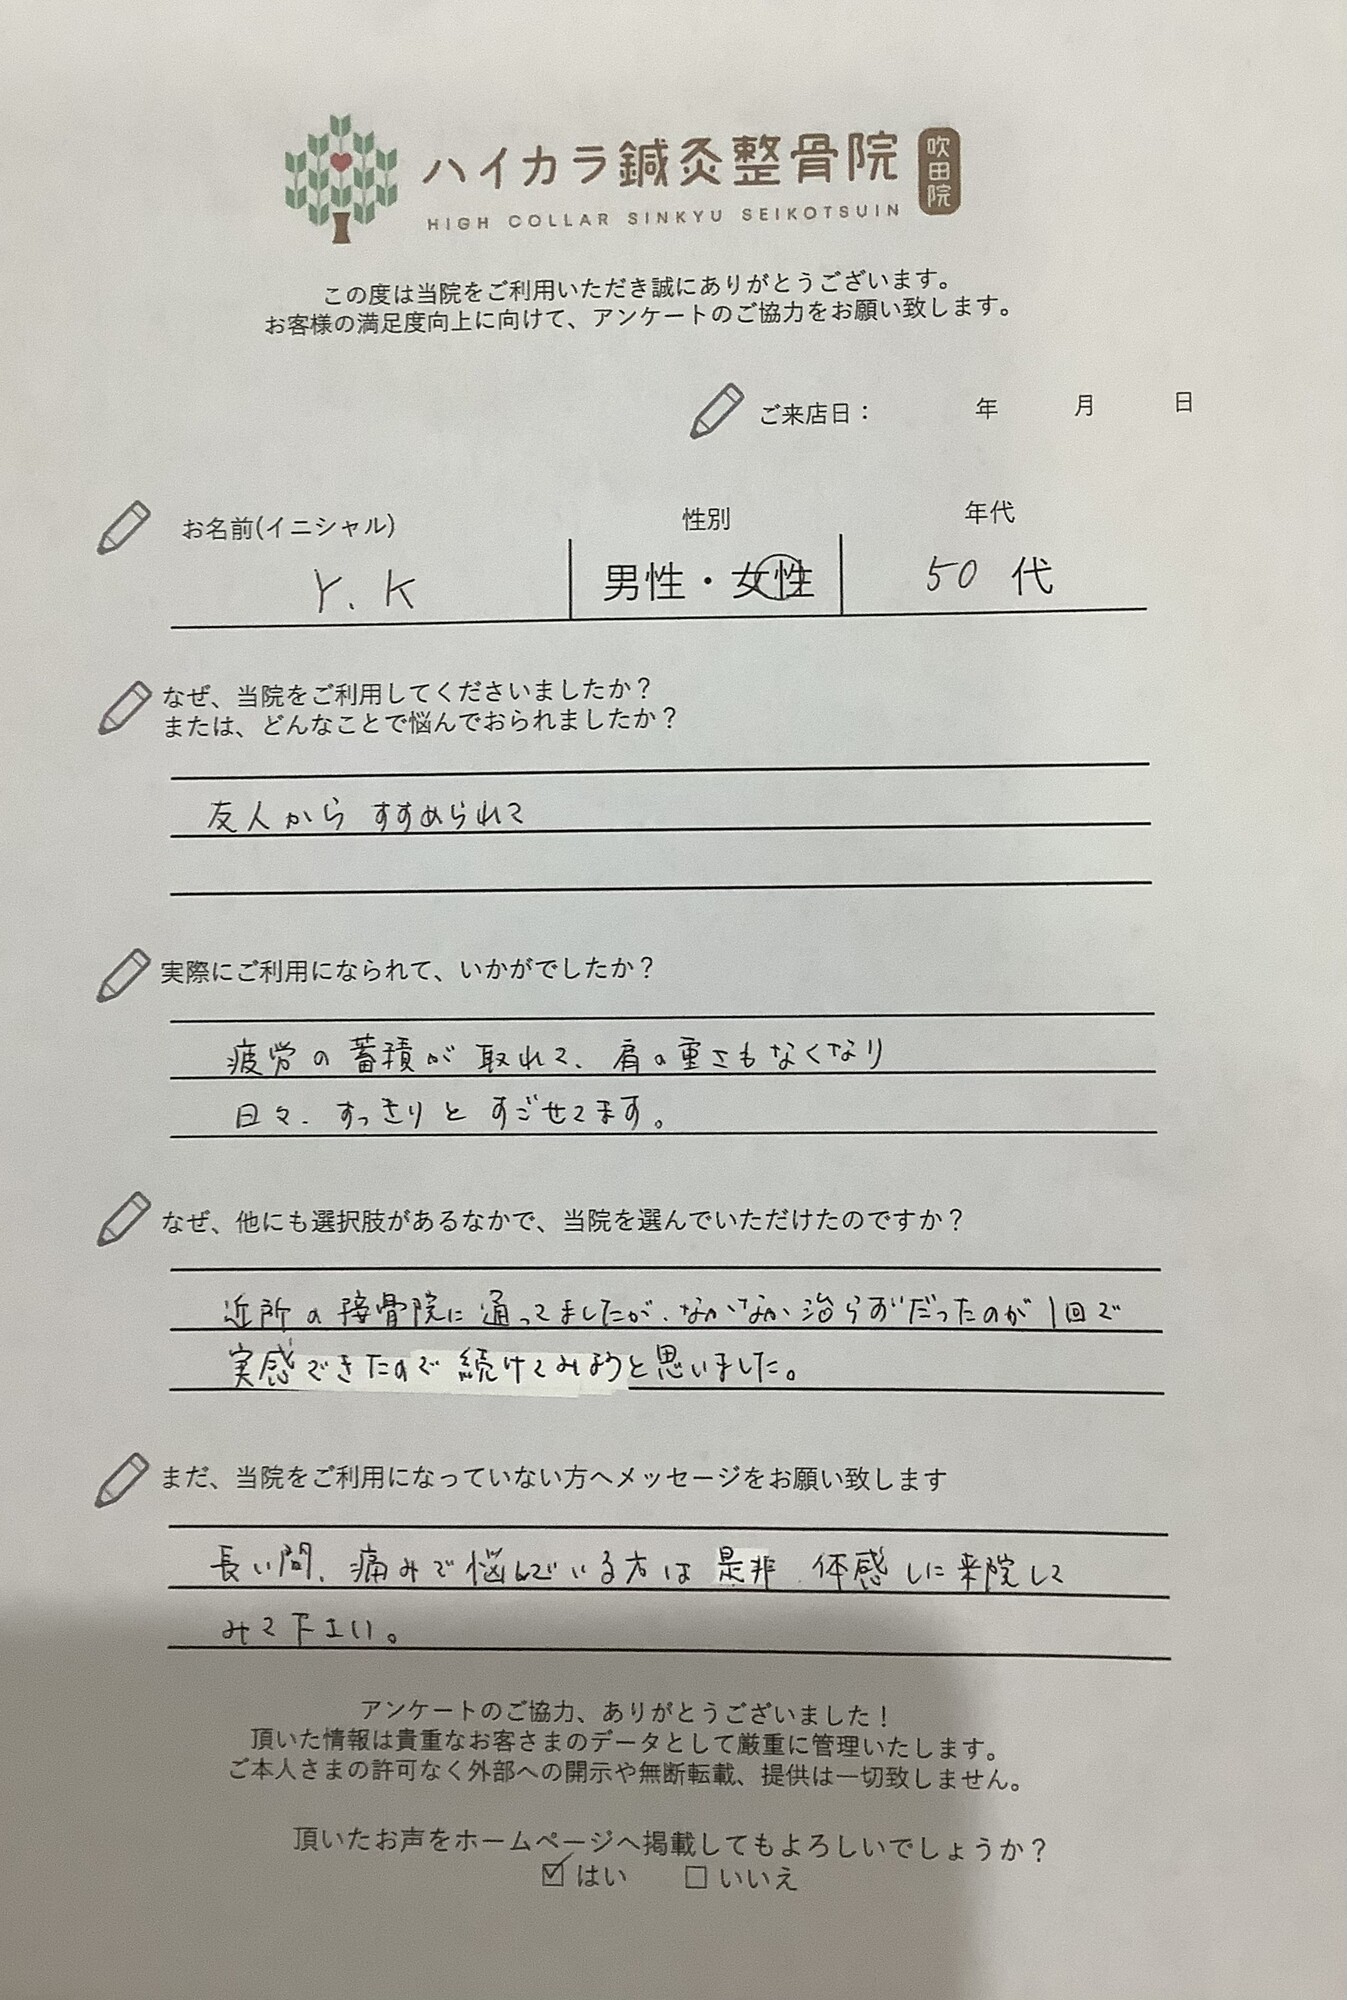 ハイカラ鍼灸整骨院 吹田院
HIGH COLLAR SINKYU SEIKOTSUIN
この度は当院をご利用いただき誠にありがとうございます。
お客様の満足度向上に向けて、アンケートのご協力をお願い致します。
ご来店日： 年 月 日
お名前(イニシャル) 性別 年代
Y.K 男性・女性 50 代
なぜ、当院をご利用してくださいましたか？
または、どんなことで悩んでおられましたか？
友人からすすめられて
実際にご利用になられて、いかがでしたか？
疲労の蓄積が取れて、肩の重さもなくなり
日々、すっきりとすごせてます。
なぜ、他にも選択肢があるなかで、当院を選んでいただけたのですか？
近所の接骨院に通ってましたが、なかなか治らずだったのが1回で
実感できたので続けてみようと思いました。
まだ、当院をご利用になっていない方へメッセージをお願い致します
長い間、痛みで悩んでいる方は是非、体感しに来院して
みて下さい。
アンケートのご協力、ありがとうございました！
頂いた情報は貴重なお客さまのデータとして厳重に管理いたします。
ご本人さまの許可なく外部への開示や無断転載、提供は一切致しません。
頂いたお声をホームページへ掲載してもよろしいでしょうか？
☑はい □いいえ